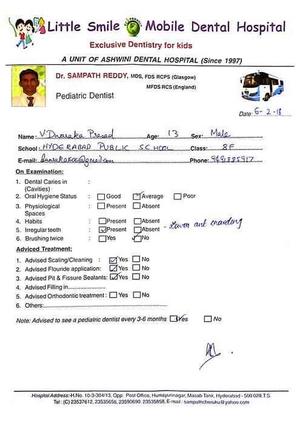 Little Smile Mobile Dental Hospital
Exclusive Dentistry for kids
A UNIT OF ASHWINI DENTAL HOSPITAL (Since 1997)
Dr. SAMPATH REDDY, MDS, FDS RCPS (Glasgow)
MFDS RCS (England)
Pediatric Dentist
Date: 6-2-18
Name: V Dwaraka Prasad Age: 13 Sex: Male
School: HYDERABAD PUBLIC SCHOOL Class: 8F
E-mail: Phone:
On Examination:
1. Dental Caries in :
(Cavities)
2. Oral Hygiene Status : Good Average Poor
3. Physiological : Present Absent
Spaces
4. Habits : Present Absent
5. Irregular teeth : Present Absent - Lower ant crowding
6. Brushing twice : Yes No
Adviced Treatment:
1. Advised Scaling/Cleaning : Yes No
2. Advised Flouride application: Yes No
3. Advised Pit & Fissure Sealants: Yes No
4. Advised Filling in
5. Advised Orthodontic treatment : Yes No
6. Others:
Note: Advised to see a pediatric dentist every 3-6 months Yes No
Hospital Address: H.No. 10-3-304/13, Opp. Post Office, Humayunnagar, Masab Tank, Hyderabad - 500 028.T.S.
Tel: (C) 23537612, 23535656, 23590690 23535858, E-mail : sampathcheruku@yahoo.com